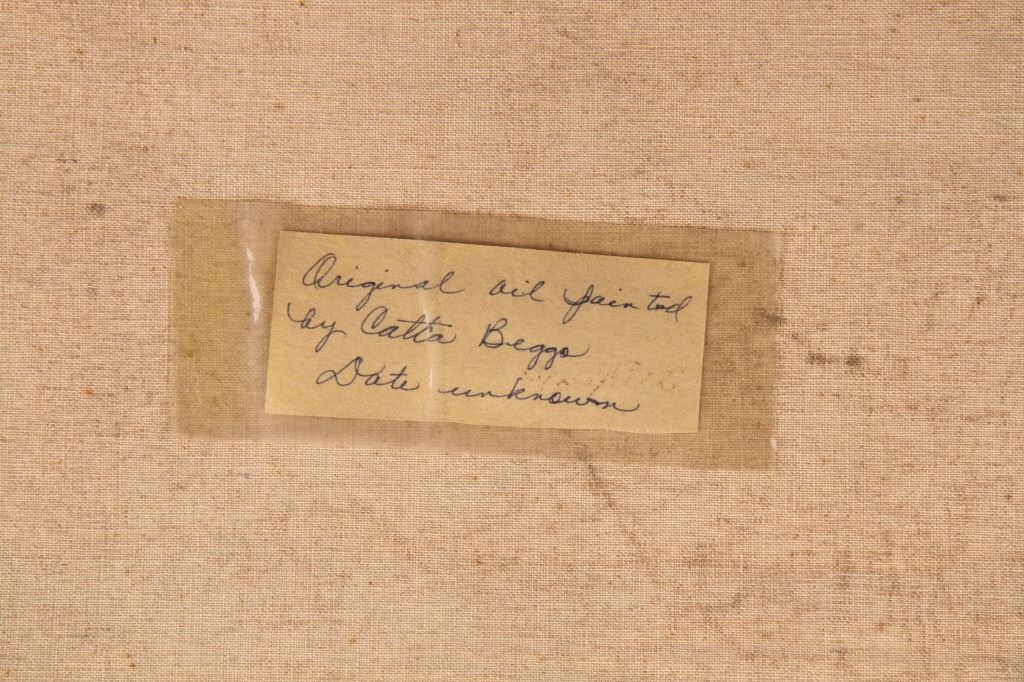 Original oil painted
by Catta Beggs
Date unknown